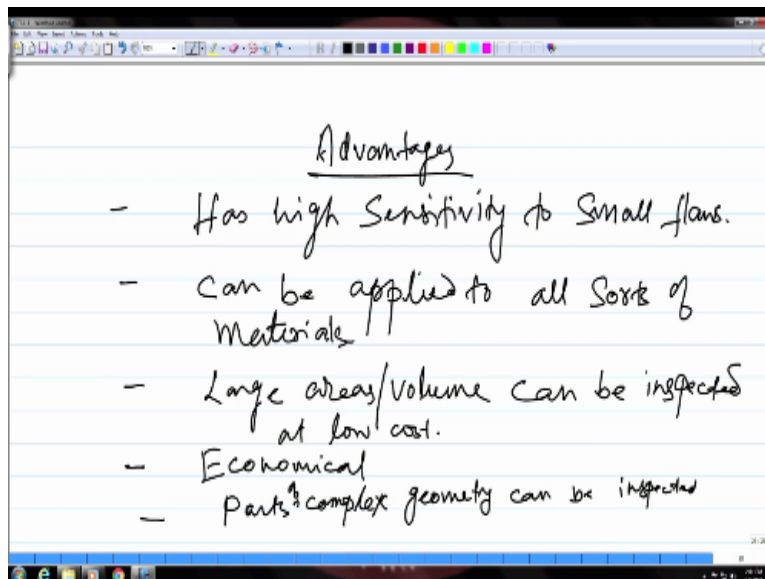 Advantages
- Has high Sensitivity to Small flaws.
- Can be applied to all Sorts of
Materials
- Large areas/volume can be inspected
at low cost.
- Economical
- Parts of complex geometry can be inspected